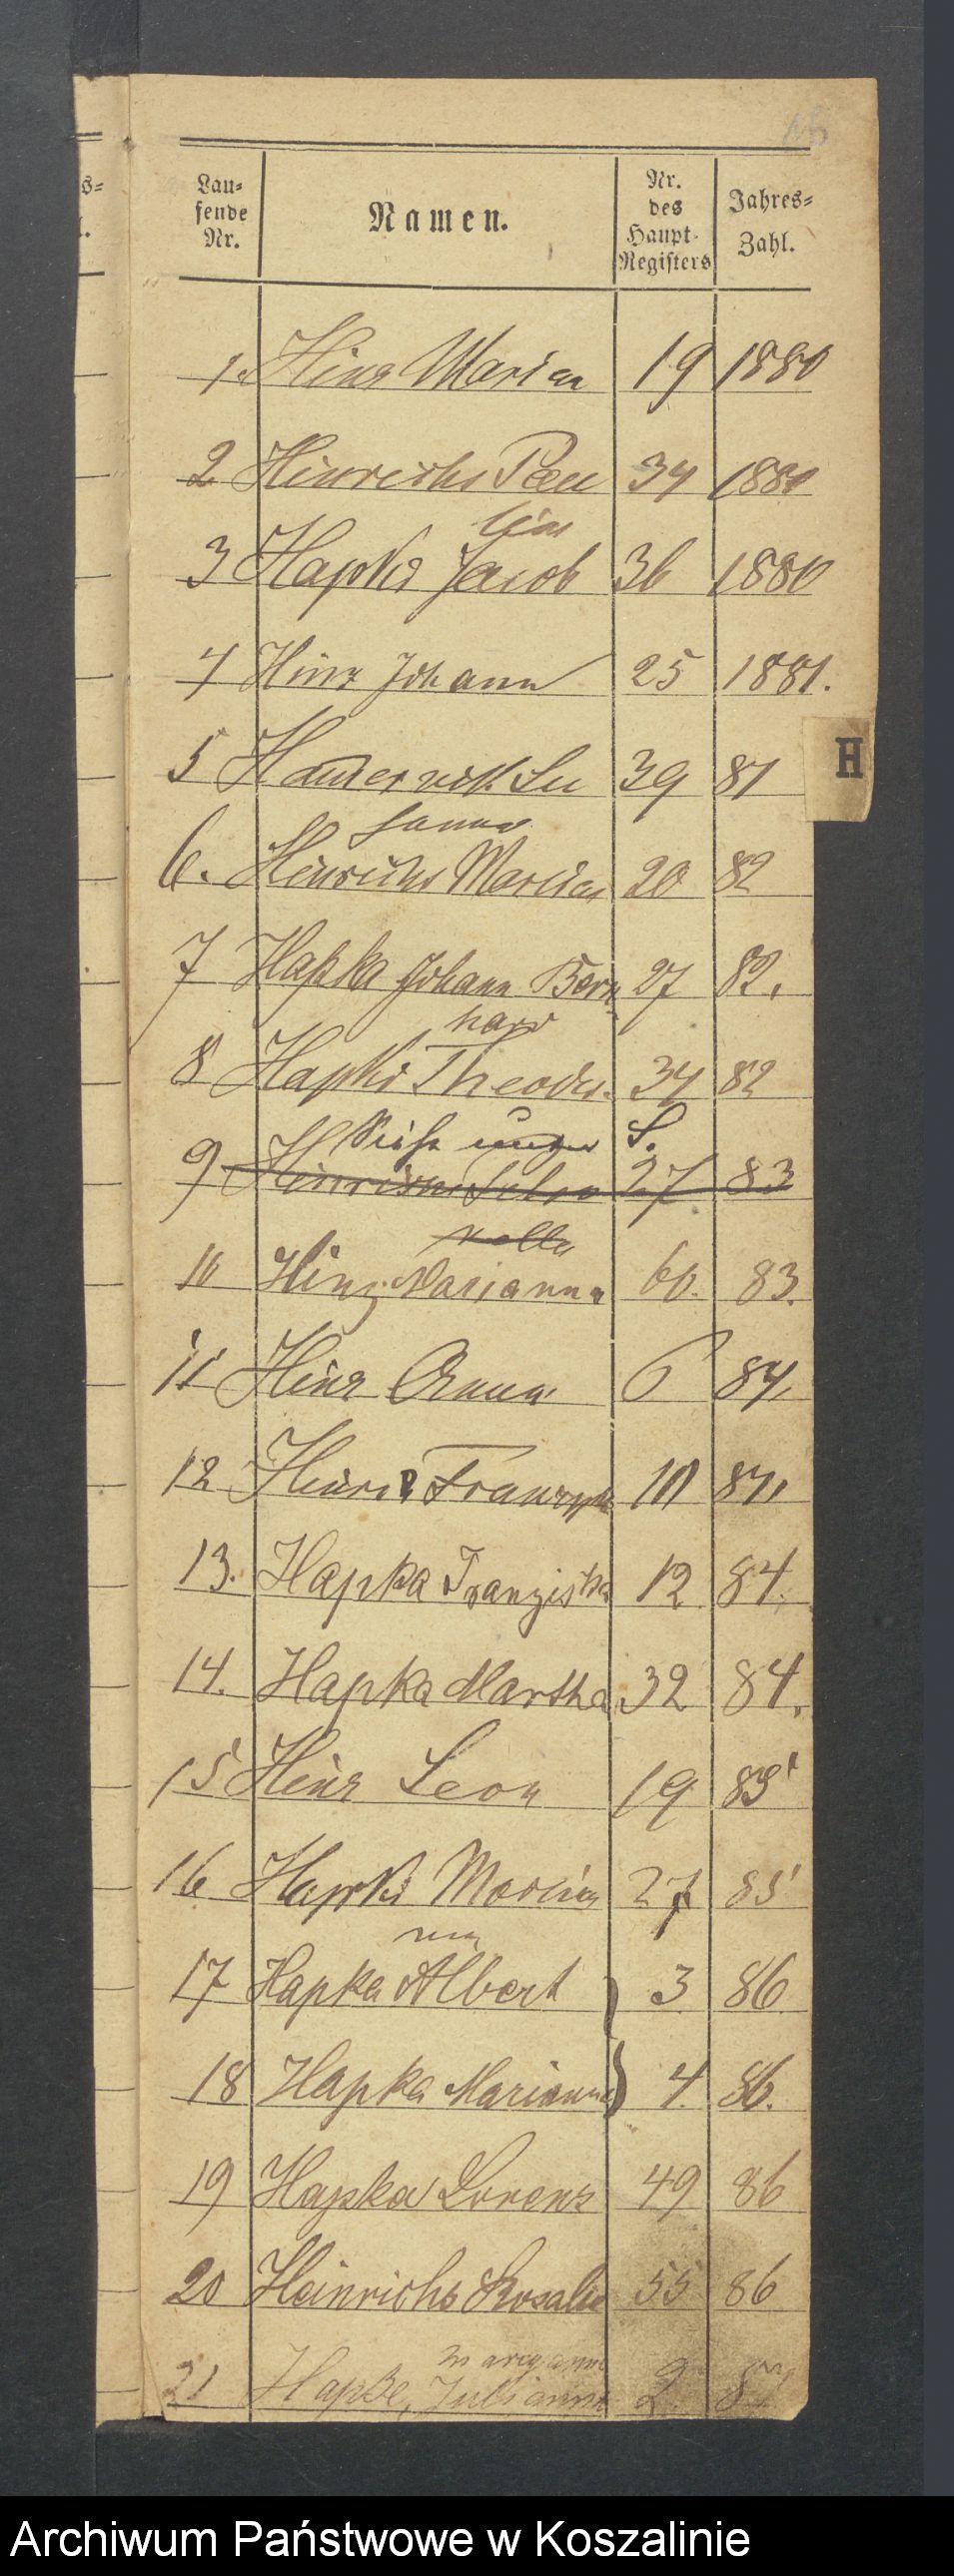 16
Lau-
fende
Nr.
Namen.
Nr.
des
Haupt-
Registers
Jahres-
Zahl.
1. Hinz Marian 19 1880
2 Hinrichs Pau 34 1880
line
3 Hapka Jacob 36 1880
4 Hinz Johann 25 1881.
5 Su 39 81
sanna
6. Hinrichs Maria 20 82
7 Hapka Johann Bern 27 82.
hard
8 Hapka Theodor 34 82
Siehe unter S.
9 Hinrichs 27 83
10 Hinz Marianna 60. 83.
11 Hinz Anna 6 84.
12 Franz 10 84.
13. Hapka Franziska 12 84.
14. Hapka Martha 32 84.
15 Hinz Leon 19 85
16 Hapka Marian 27 85
17 Hapka Albert 3 86
18 Hapka Marianna 4. 86.
19 Hapka Lorenz 49 86
H
20 Heinrichs Rosalie 55 86
21 Hapke, Julianna 2. 87
Archiwum Państwowe w Koszalinie